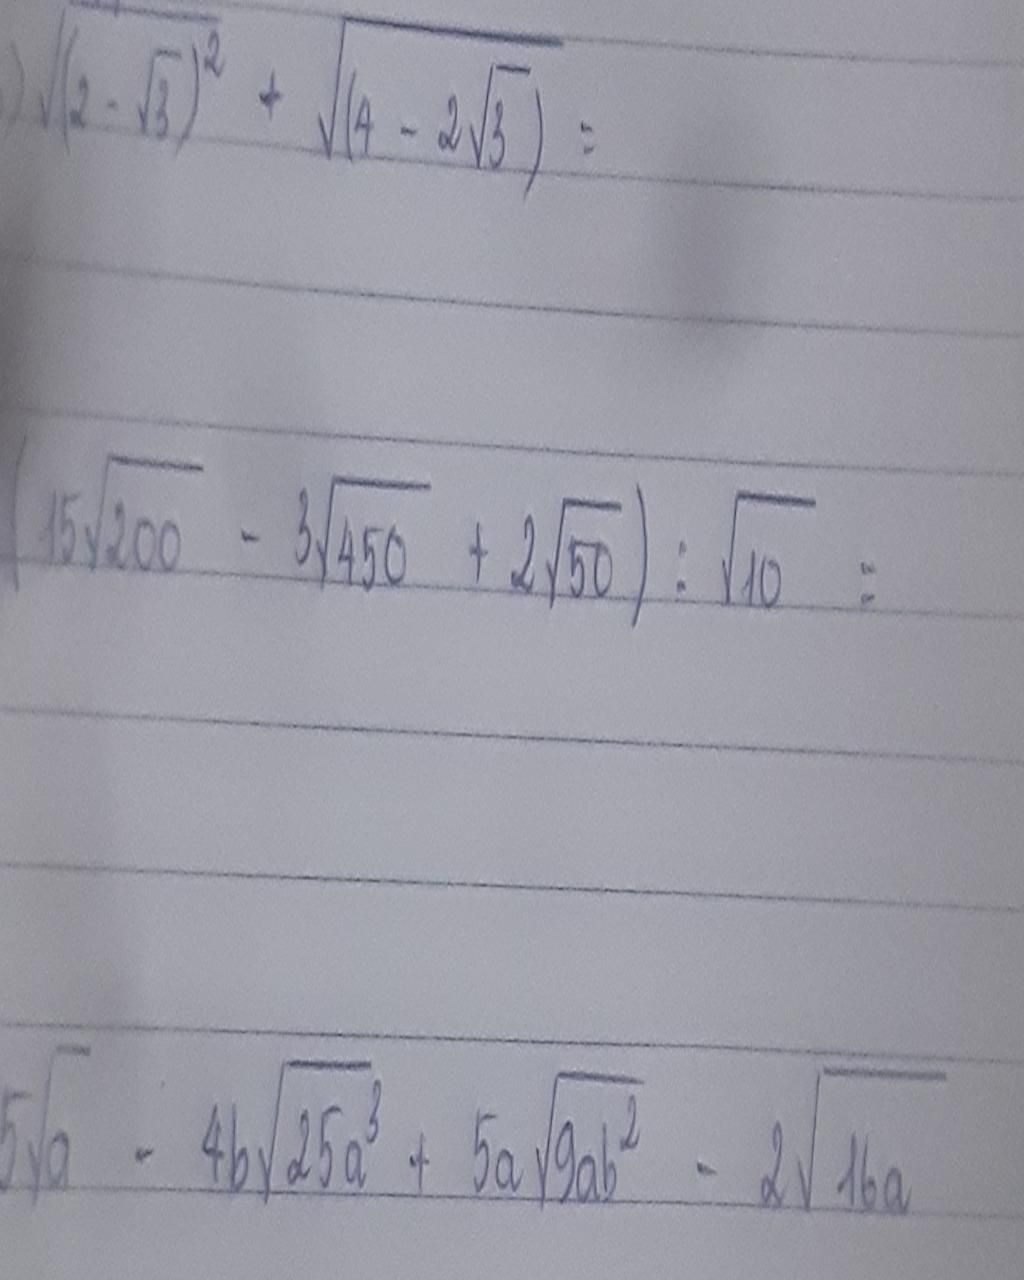 ) √(2 - √3)² + √(4 - 2√3) =
(15√200 - 3√450 + 2√50) : √10 =
5√a - 4b√25a³ + 5a√9ab² - 2√16a